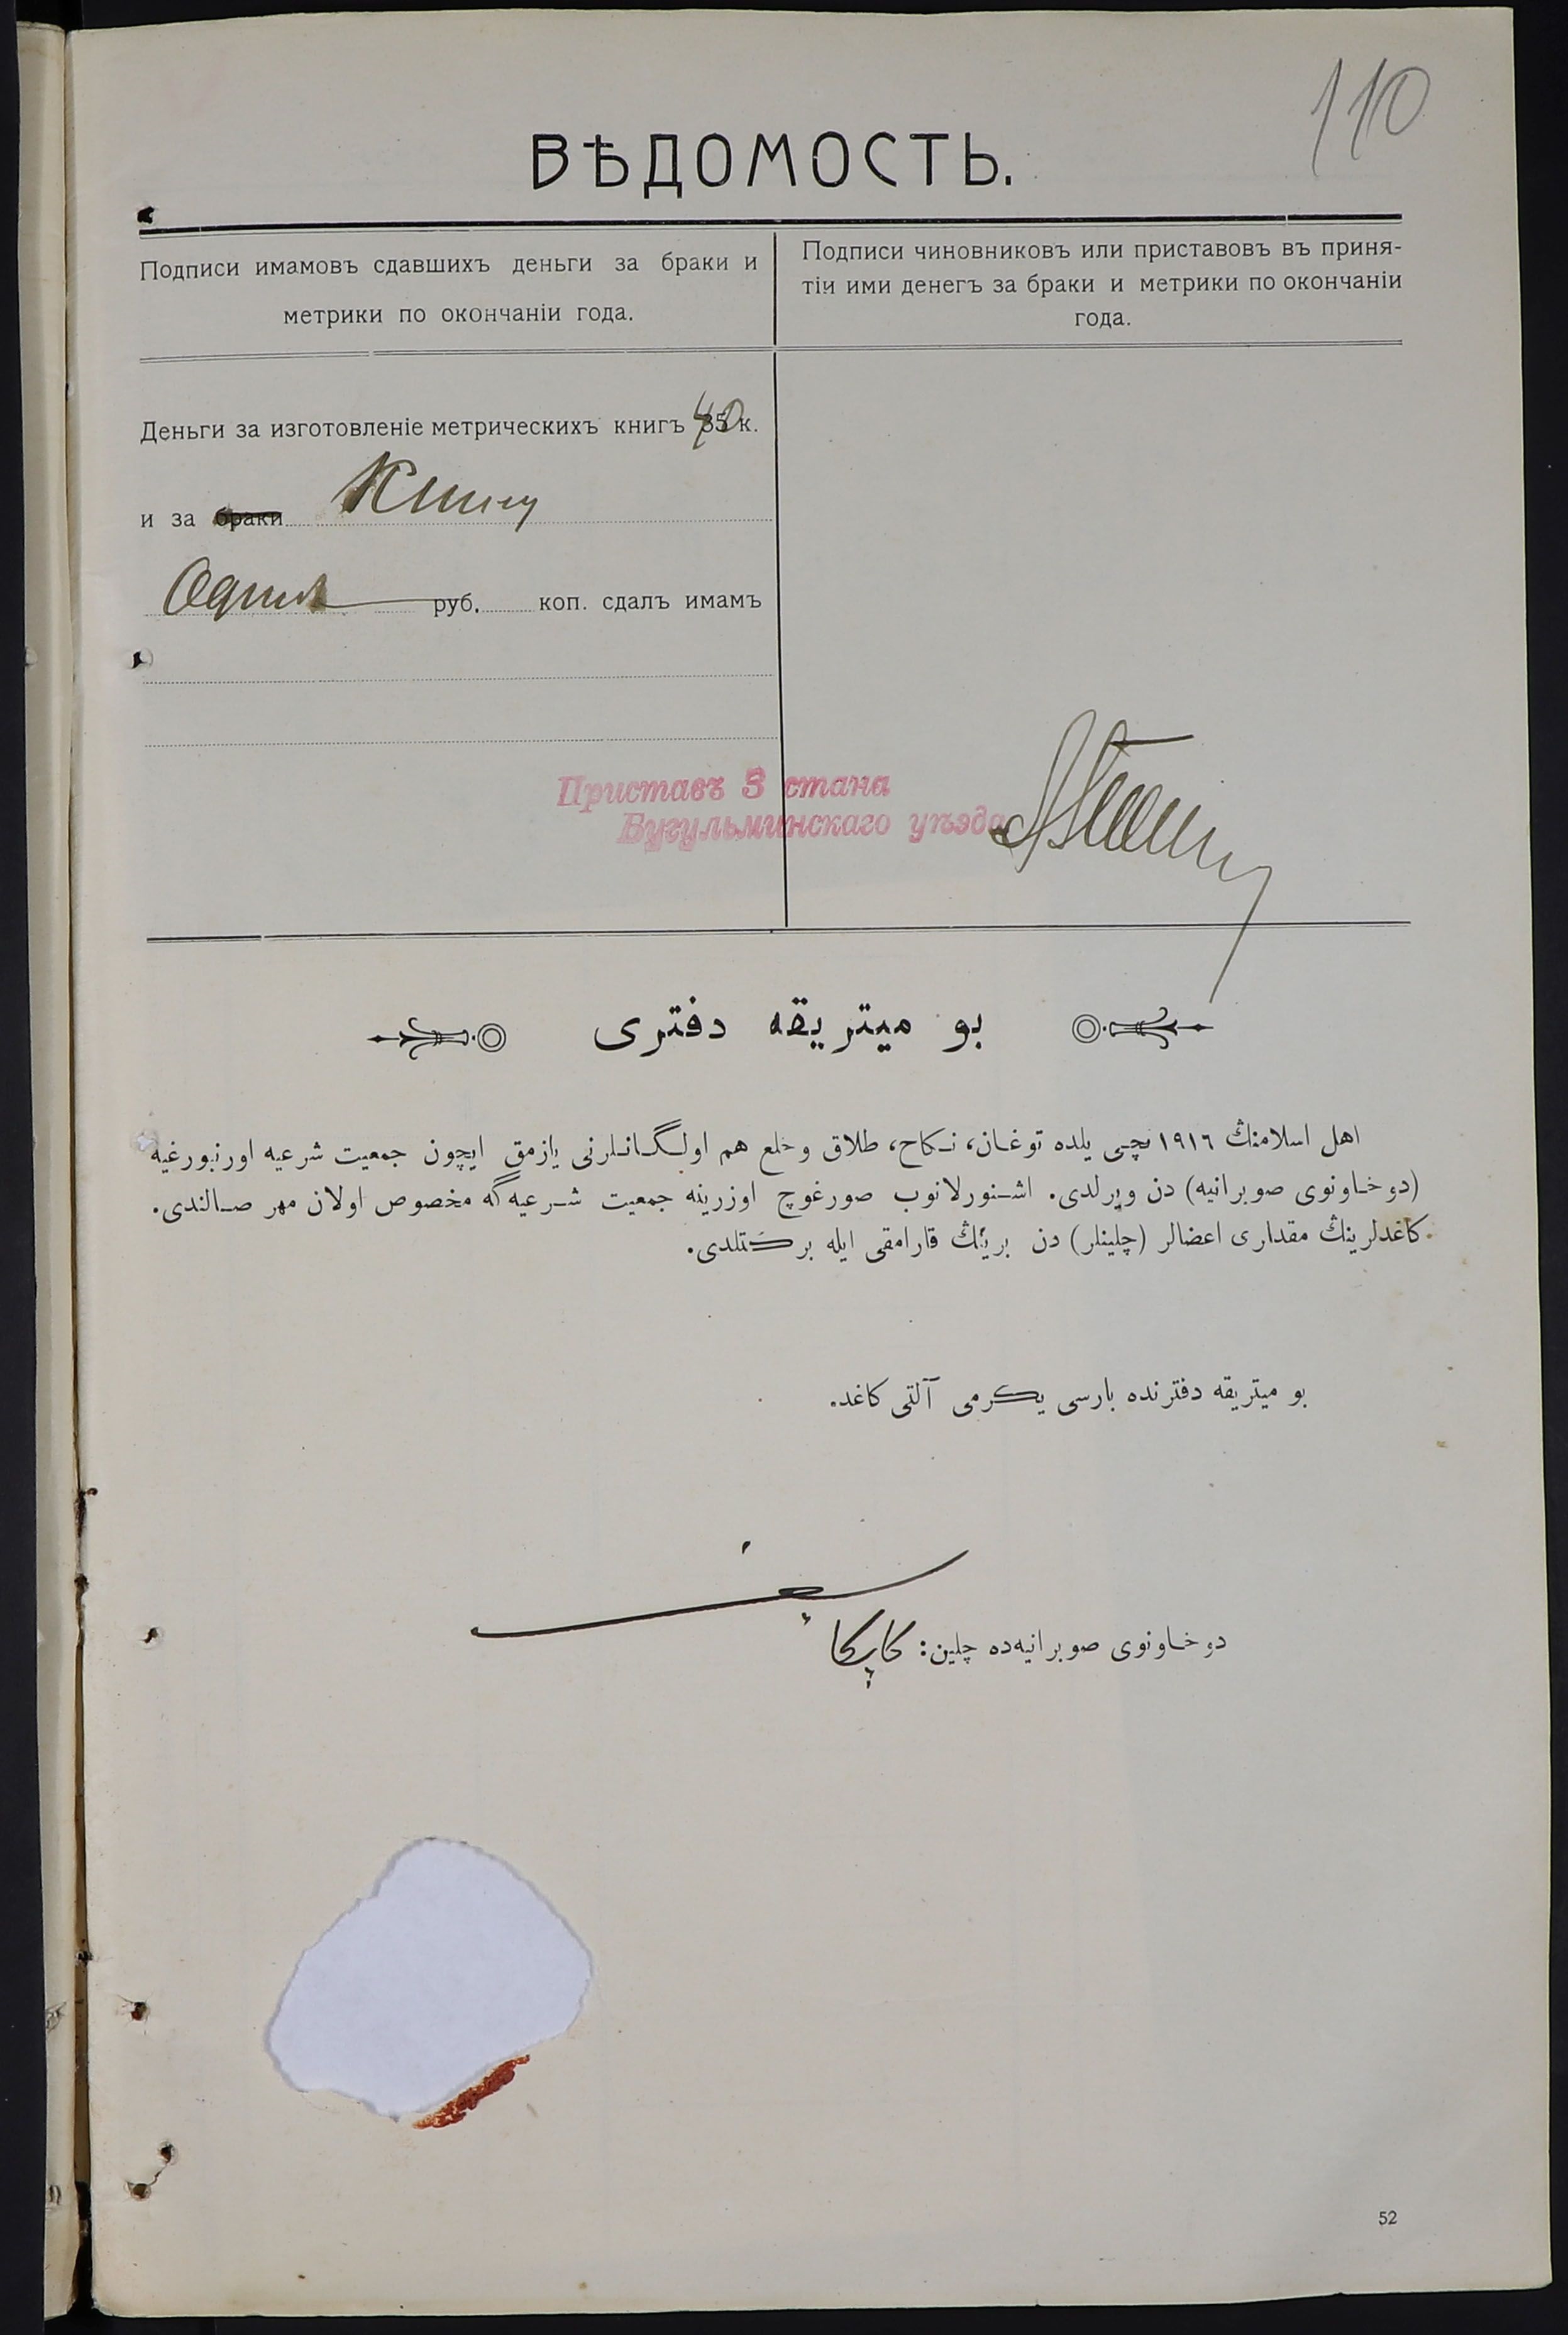 110
ВѢДОМОСТЬ.
Подписи имамовъ сдавшихъ деньги за браки и
метрики по окончаніи года.
Подписи чиновниковъ или приставовъ въ приня-
тіи ими денегъ за браки и метрики по окончаніи
года.
Деньги за изготовленіе метрическихъ книгъ 40 к.
и за браки Книгу
Одинъ руб. коп. сдалъ имамъ
Приставъ 3 стана
Бугульминскаго уѣзда
بو ميتريقه دفترى
اهل اسلامنڭ ١٩١٦ نچـى يلده توغـان، نـكاح، طلاق وخلع هم اولـگـانـلرنى يازمق ايچون جمعيت شرعيه اورنبورغيه
(دوخـاونوى صوبرانيه) دن ويرلدى. اشـنورلانوب صورغوچ اوزرينه جمعيت شـرعيه گه مخصوص اولان مهر صـالندى.
كاغدلرينڭ مقدارى اعضالر (چلينلر) دن برينڭ قارامقى ايله بركتلدى.
بو ميتريقه دفترنده بارسى يكرمى آلتى كاغد.
دوخـاونوى صوبرانيه‌ده چلين:
52